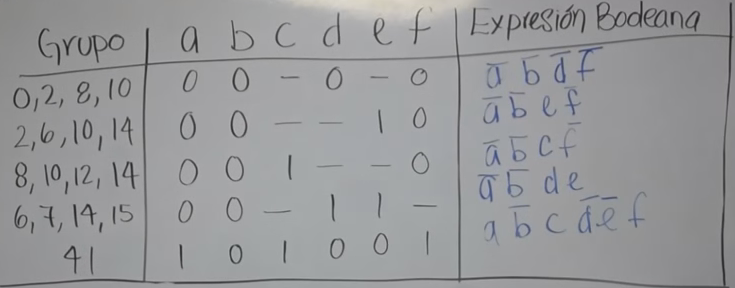 Grupo a b c d e f Expresión Booleana
0,2,8,10 0 0 - 0 - 0 a̅ b̅ d̅ f̅
2,6,10,14 0 0 - - 1 0 a̅ b̅ e f̅
8,10,12,14 0 0 1 - - 0 a̅ b̅ c f̅
6,7,14,15 0 0 - 1 1 - a̅ b̅ d e
41 1 0 1 0 0 1 a b̅ c d̅ e̅ f